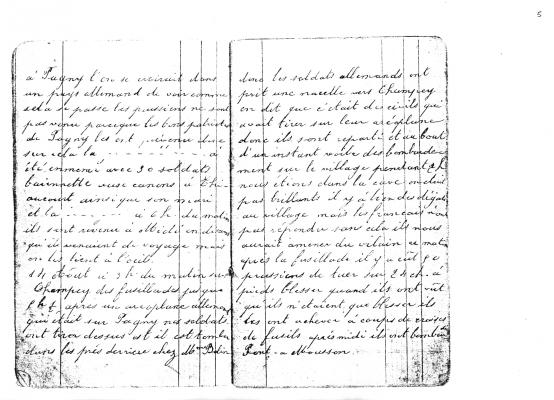 5
à Pagny l'on se croirait dans
un pays allemand de voir comme
cela se passe les prussiens ne sont
pas venu parceque les bons patriotes
de Pagny les ont prévenu donc
sur cela la - - - - - - - - - a
été emmené avec 30 soldats
baïonnette canons à
ainsi que son mari
et la - - - - - - à h. du matin
ils sont revenu à midi en disant
qu'il venaient de voyage mais
on les tient à l'oeil.
14 Août à 5h du matin sur
Champey des fusillades jusque
après un aéroplane allemand
qui était sur Pagny nos soldats
ont tirer dessus et il est tombé
dans les près derrière chez Mr
donc les soldats allemands ont
prit une nacelle vers Champey
en dit que c'était des civils qui
avait tirer sur leur aéroplane
donc ils sont reparti et au bout
d'un instant voila des bombarde-
ment sur le village pendant
nous étions dans la cave on était
pas brillants il y a bien des dégats
au village mais les français n'ont
pas répondre sans cela ils nous
aurait amener du vilain ce matin
après la fusillade il y a eût 90
prussiens de tuer sur 2
pieds blesser quand ils ont vût
qu'ils n'étaient que blesser ils
les ont achever à coups de crosses
de fusils après midi ils ont bombardé
Pont-a-Mousson